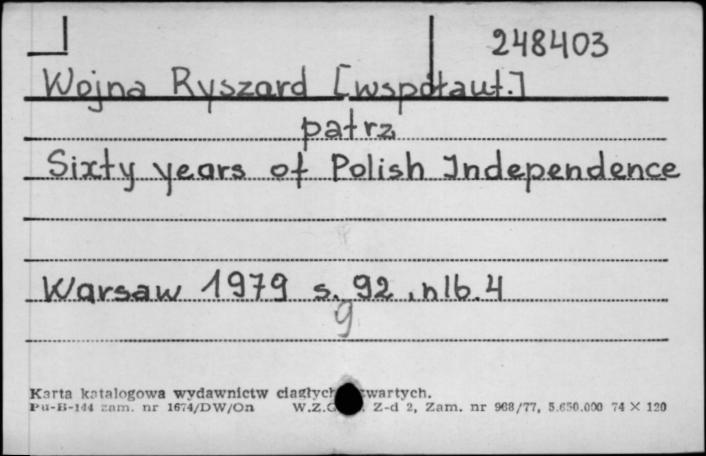 248403
Wojna Ryszard [współaut.]
patrz
Sixty years of Polish Independence
Warsaw 1979 s. 92, nlb. 4
9
Karta katalogowa wydawnictw ciągłych
Pu-B-144 zam. nr 1674/DW/On W.Z.G. Z-d 2, Zam. nr 968/77, 5.650.000 74 X 120